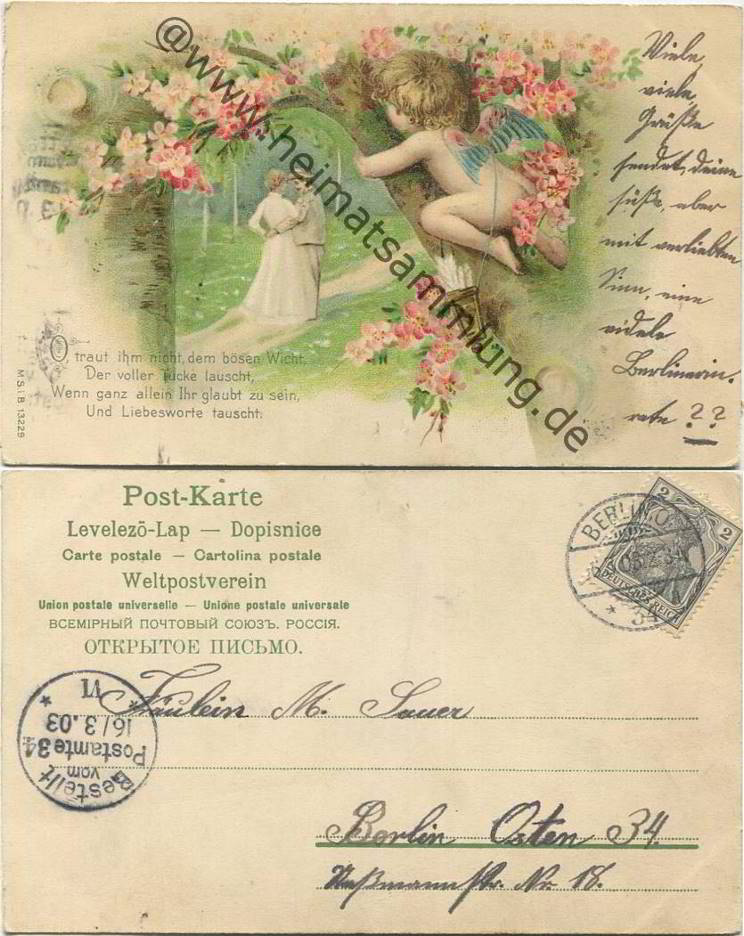 @www.heimatsammlung.de
Viele,
viele
Grüße
sendet, deine
süße, aber
mit verliebten
Sinn, eine
fidele
Berlinerin.
rate ??
O traut ihm nicht, dem bösen Wicht,
Der voller Tücke lauscht,
Wenn ganz allein Ihr glaubt zu sein,
Und Liebesworte tauscht.
M.S.i.B. 13229
Post-Karte
Levelezō-Lap — Dopisnice
Carte postale — Cartolina postale
Weltpostverein
Union postale universelle — Unione postale universale
ВСЕМІРНЫЙ ПОЧТОВЫЙ СОЮЗЪ. РОССІЯ.
ОТКРЫТОЕ ПИСЬМО.
BERLIN, O.
34
2 2
DEUTSCHES REICH
Bestellt
vom
Postamte 34
16/3.03
VI
Fräulein M. Sauer
Berlin Osten 34.
Str. Nr. 18.